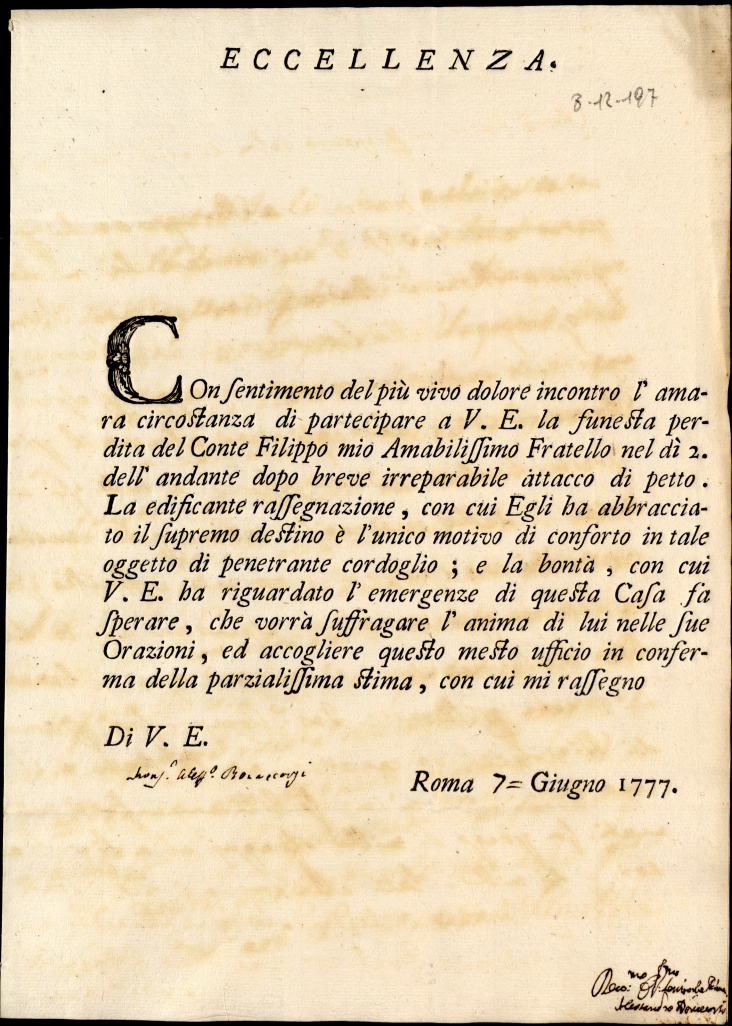 ECCELLENZA.
8-12-197
COn ſentimento del più vivo dolore incontro l' ama-
ra circoſtanza di partecipare a V. E. la funeſta per-
dita del Conte Filippo mio Amabiliſſimo Fratello nel dì 2.
dell' andante dopo breve irreparabile attacco di petto.
La edificante raſſegnazione, con cui Egli ha abbraccia-
to il ſupremo deſtino è l'unico motivo di conforto in tale
oggetto di penetrante cordoglio; e la bontà, con cui
V. E. ha riguardato l' emergenze di queſta Caſa fa
ſperare, che vorrà ſuffragare l' anima di lui nelle ſue
Orazioni, ed accogliere queſto meſto ufficio in confer-
ma della parzialiſſima ſtima, con cui mi raſſegno
Di V. E.
Roma 7= Giugno 1777.
Alessandro